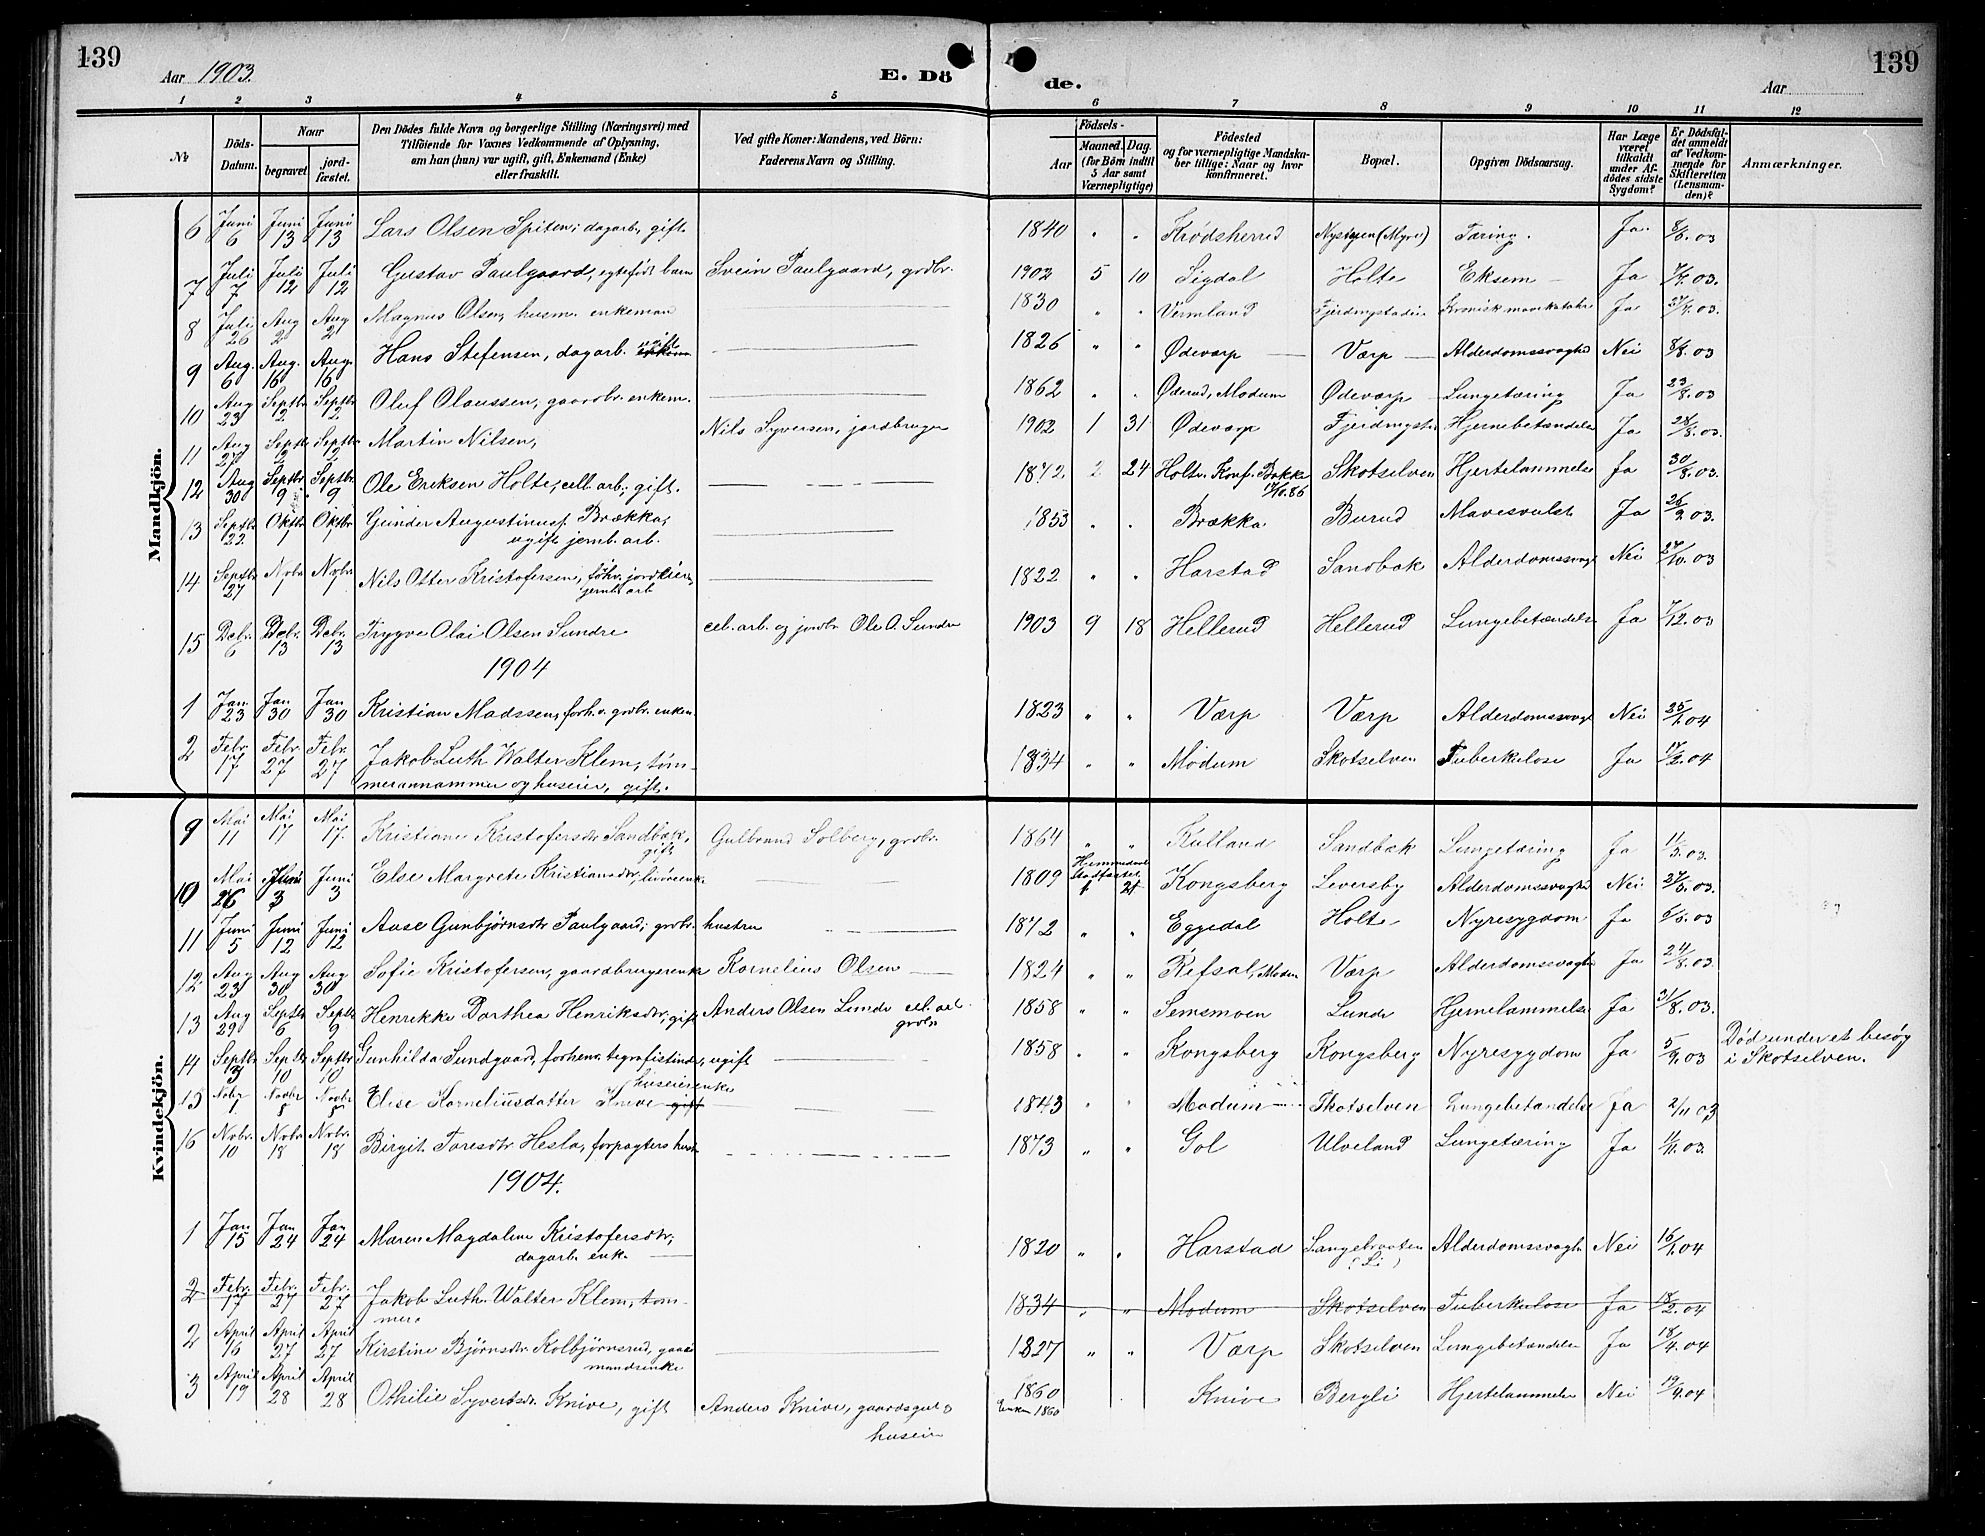 139
Aar 1903.
E. Dö
de.
Aar
139
1 2 3 4 5 6 7 8 9 10 11 12
No
Döds-Datum.
Naar
begravet
jord-fæstet.
Den Dödes fulde Navn og borgerlige Stilling (Næringsvei) med
Tilföiende for Voxnes Vedkommende af Oplysning,
om han (hun) var ugift, gift, Enkemand (Enke)
eller fraskilt.
Ved gifte Koner: Mandens, ved Börn:
Faderens Navn og Stilling.
Födsels-
Aar
Maaned. Dag.
(for Börn indtil
5 Aar samt
Værnepligtige)
Födested
og for værnepligtige Mandska-
ber tillige: Naar og hvor
konfirmeret.
Bopæl.
Opgiven Dödsaarsag.
Har Læge
været
tilkaldt
under Af-
dödes sidste
Sygdom?
Er Dödsfal-
det anmeldt
af Vedkom-
mende for
Skifteretten
(Lensman-
den)?
Anmærkninger.
Mandkjön.
6 Juni 6 Juni 13 Juni 13 Lars Olsen Spiten; dagarb., gift. 1840 " " Krødsherred Nystøen (Myre) Tæring. Ja. 8/6.03
7 Juli 7 Juli 12 Juli 12 Gustav Paulgaard, egtefødt barn Svein Paulgaard, grdbr. 1902 5 10 Sigdal Holte Eksem Ja 7/7.03.
8 Juli 26 Aug 2 Aug 2 Magnus Olsen, husm. enkeman 1830 " " Vermland Fjerdingstadeie Kronisk mavekatahr Ja 27/7.03.
9 Aug. 6 Aug. 16 Aug. 16 Hans Stefensen, dagarb. ugift 1826 " " Ødeværp Værp Alderdomssvaghed Nei 8/8.03
10 Aug 23 Septbr 2 Septbr 2 Oluf Olaussen, gaardbr. enkem. 1862 " " Øderud, Modum Ødeværp Lungetæring Ja 23/8.03
11 Aug 27 Septbr 2 Septbr 2 Martin Nilsen, Nils Syversen, jordbruger 1902 1 31 Ødeværp Fjerdingst. Hjernebetændelse Ja 28/8.03.
12 Aug 30 Septbr 9 Septbr 9 Ole Eriksen Holte, cell. arb., gift. 1872. 2 24 Holte. Konf. Bakke 17/10.86 Skotselven Hjertelammelse Ja 30/8.03.
13 Septbr 22 Oktbr 1 Oktbr 1 Gunder Augustinusf. Brækka,
ugift jernb. arb. 1853 " " Brækka Burud Mavesvulst Ja 26/9.03.
14 Septbr 27 Nobr 1 Nobr 1 Nils Otter Kristofersen, fohv. jordeier,
jernb. arb 1822 " " Harstad Sandbak Alderdomssvagh Nei 27/10.03
15 Dcbr. 6 Dcbr. 13 Dcbr. 13 Trygve Olai Olsen Sundre cel. arb. og jordbr. Ole O. Sundre 1903 9 18 Hellerud Hellerud Lungebetændelse Ja 7/12.03
1904
1 Jan. 23 Jan 30 Jan 30 Kristian Madssen, forh. v. grdbr. enkem 1823 " " Værp Værp Alderdomssvagh Nei 25/1.04
2 Febr. 17 Febr. 27 Febr. 27 Jakob Luth Walter Klem, tøm-
merannammer og huseier, gift. 1834 " " Modum Skotselven Tuberkulose Ja 17/2.04
Kvindekjön.
9 Mai 11 Mai 17 Mai 17. Kristiane Kristofersdtr. Sandbæk,
gift Gulbrand Solberg, grdbr. 1864 " " Kulland Sandbæk Lungetæring Ja 11/5.03.
10 Mai 26 Juni 3 Juni 3 Else Margrete Kristiansdtr, 1809 1 21 Kongsberg Leversby Alderdomssvagh Nei 27/5.03.
11 Juni 5 Juni 12 Juni 12 Aase Gunbjørnsdtr Paulgaard; grdbr. hustru 1872 " " Eggedal Holte Nyresygdom Ja 6/6.03
12 Aug 23 Aug 30 Aug 30 Sofie Kristofersen, gaardbrugerenke Kornelius Olsen 1824 " " Refsal, Modum Værp Alderdomssvaghed Ja 24/8.03
13 Aug 29 Septbr 6 Septbr 9 Henrikke Dorthea Henriksdtr, gift Anders Olsen Lunde cel. arb.
grdbr 1858 " " Semsmoen Lunde Hjernelammelse Ja 31/8.03.
14 Septbr 3 Septbr 10 Septbr 10 Gunhilda Sundgaard, forhenv. tegrafistinde, ugift 1858 " " Kongsberg Kongsberg Nyresygdom Ja 5/9.03 Død under et besøg
i Skotselven.
15 Nobr 1 Novbr 8 Novbr 8 Elise Korneliusdatter Knive gift huseierenke 1843 " " Modum Skotselven Lungebetændelse Ja 2/11 03
16 Nobr. 10 Nobr. 18 Nobr. 18 Birgit Toresdtr. Hesla, forpagters hust 1873 " " Gol Ulveland Lungetæring Ja 11/11.03.
1904.
1 Jan 15 Jan 24 Jan 24 Maren Magdalene Kristofersdtr,
dagarb. enke 1820 " " Harstad Langebraaten
(Li) Alderdomssvagh Nei 16/1.04
2 Febr. 17 Febr. 27 Febr. 27 Jakob Luth. Walter Klem, tøm-
mer 1834 " " Modum Skotselven Tuberkulose Ja 18/2.04
2 April 16 April 27 April 27 Kirstine Bjørnsdtr Kolbjørnsrud, gaard
mandsenke 1827 " " Værp Skotselven Lungebetændelse Ja 18/4.04
3 April 19 April 28 April 28 Othilie Syvertsdr. Knive, gift Anders Knive, gaardsgut &
huseier 1860
Enken 1860 Knive Bergli Hjertelammelse Nei 19/4.04